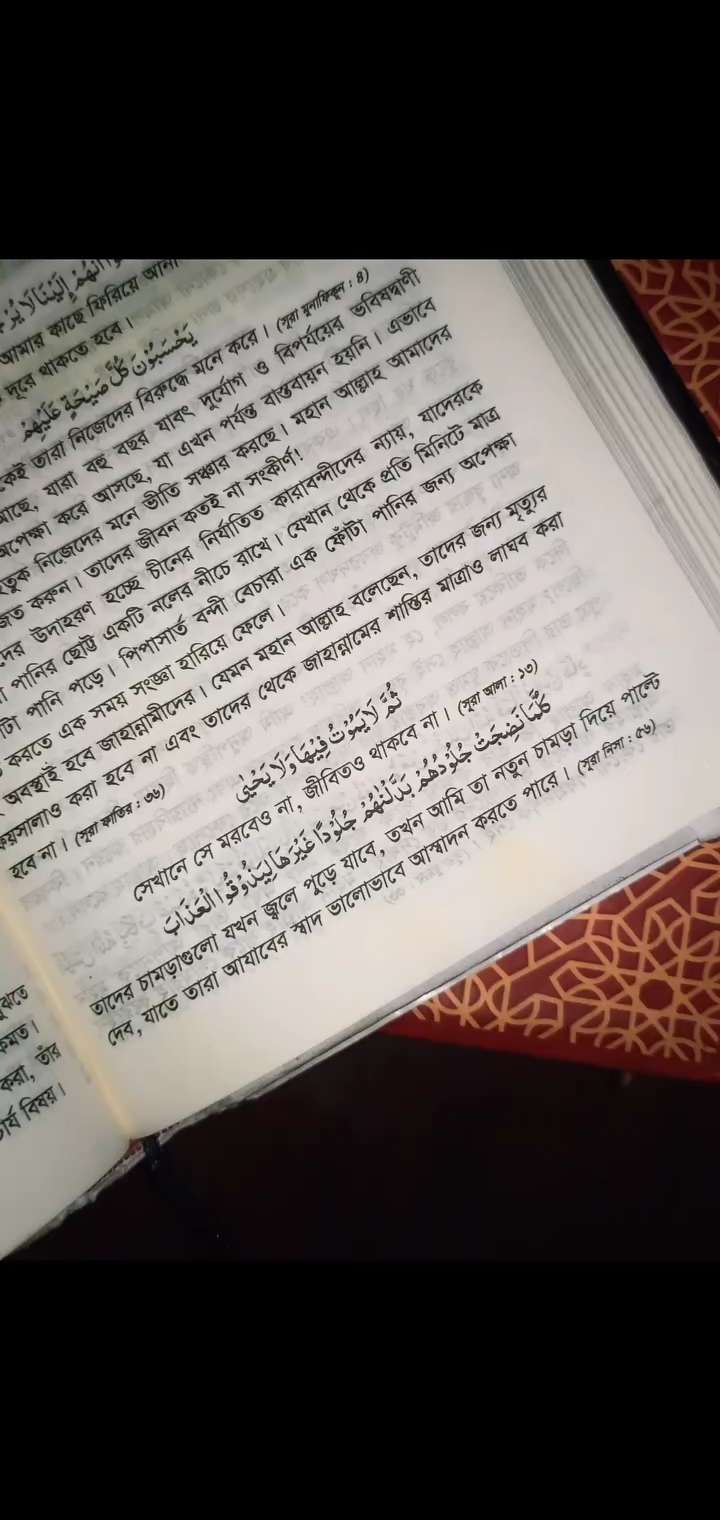 إِلَيْنَا لَا
আমার কাছে ফিরিয়ে আনা
দূরে থাকতে হবে।
يَحْسَبُوْنَ كُلَّ صَيْحَةٍ عَلَيْهِمْ
তারা নিজেদের বিরুদ্ধে মনে করে। (সূরা মুনাফিকুন : ৪)
যারা বহু বছর যাবৎ দুর্যোগ ও বিপর্যয়ের ভবিষদ্বাণী
করে আসছে, যা এখন পর্যন্ত বাস্তবায়ন হয়নি। এভাবে
নিজেদের মনে ভীতি সঞ্চার করছে। মহান আল্লাহ আমাদের
করুন। তাদের জীবন কতই না সংকীর্ণ!
উদাহরণ হচ্ছে চীনের নির্যাতিত কারাবন্দীদের ন্যায়, যাদেরকে
পানির ছোট্ট একটি নলের নীচে রাখে। যেখান থেকে প্রতি মিনিটে মাত্র
পানি পড়ে। পিপাসার্ত বন্দী বেচারা এক ফোঁটা পানির জন্য অপেক্ষা
করতে এক সময় সংজ্ঞা হারিয়ে ফেলে।
অবস্থাই হবে জাহান্নামীদের। যেমন মহান আল্লাহ বলেছেন, তাদের জন্য মৃত্যুর
করা হবে না এবং তাদের থেকে জাহান্নামের শাস্তির মাত্রাও লাঘব করা
হবে না। (সূরা ফাতির : ৩৬)
ثُمَّ لَا يَمُوْتُ فِيْهَا وَلَا يَحْيٰى
সেখানে সে মরবেও না, জীবিতও থাকবে না। (সূরা আলা : ১৩)
كُلَّمَا نَضِجَتْ جُلُوْدُهُمْ بَدَّلْنٰهُمْ جُلُوْدًا غَيْرَهَا لِيَذُوْقُوا الْعَذَابَ
তাদের চামড়াগুলো যখন জ্বলে পুড়ে যাবে, তখন আমি তা নতুন চামড়া দিয়ে পাল্টে
দেব, যাতে তারা আযাবের স্বাদ ভালোভাবে আস্বাদন করতে পারে। (সূরা নিসা : ৫৬)
করা, তাঁর
বিষয়।